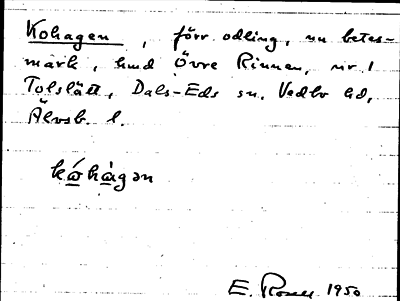 Kohagen, förr odling, nu betes-
mark, hmd Övre Rinnen, nr 1
Tolslätt, Dals-Eds sn, Vedbo hd,
Älvsb. l.
kó̱hà̱gən
E. 1950